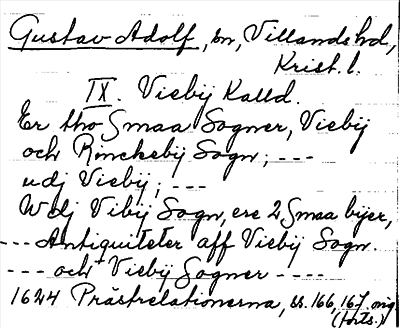 Gustav Adolf, sn, Villands hd,
Krist. l.
IX. Viebÿ Kalld.
Er tho Smaa Sogner, Viebÿ
och Rinckebÿ Sogn; ---
udj Viebÿ; ---
Wdj Vibÿ Sogn, ere 2 Smaa bÿer,
--- Antiquiteter aff Viebÿ Sogn
--- och Viebÿ Sogner ----
1624 Prästrelationerna, ss. 166, 167. orig.
(forts.)